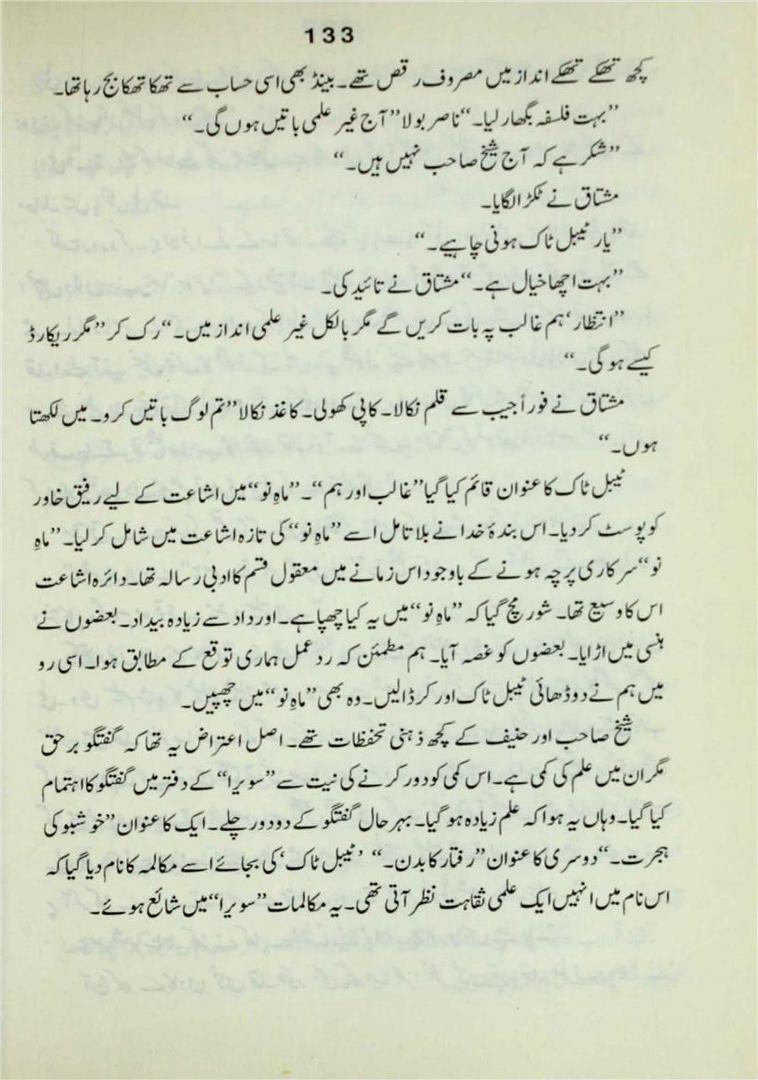 133
کچھ تھکے تھکے انداز میں مصروف رقص تھے۔ بینڈ بھی اسی حساب سے تھکا تھکا بج رہا تھا۔
”بہت فلسفہ بگھار لیا۔“ ناصر بولا ”آج غیر علمی باتیں ہوں گی۔“
”شکر ہے کہ آج شیخ صاحب نہیں ہیں۔“
مشتاق نے ٹکڑا لگایا۔
”یار ٹیبل ٹاک ہونی چاہیے۔“
”بہت اچھا خیال ہے۔“ مشتاق نے تائید کی۔
”انتظار‘ ہم غالب پہ بات کریں گے مگر بالکل غیر علمی انداز میں۔“ رک کر ”مگر ریکارڈ
کیسے ہوگی۔“
مشتاق نے فوراً جیب سے قلم نکالا۔ کاپی کھولی۔ کاغذ نکالا ”تم لوگ باتیں کرو۔ میں لکھتا
ہوں۔“
ٹیبل ٹاک کا عنوان قائم کیا گیا ”غالب اور ہم“۔ ”ماہِ نو“ میں اشاعت کے لیے رفیق خاور
کو پوسٹ کر دیا۔ اس بندۂ خدا نے بلا تامل اسے ”ماہِ نو“ کی تازہ اشاعت میں شامل کر لیا۔ ”ماہِ
نو“ سرکاری پرچہ ہونے کے باوجود اس زمانے میں معقول قسم کا ادبی رسالہ تھا۔ دائرہ اشاعت
اس کا وسیع تھا۔ شور مچ گیا کہ ”ماہِ نو“ میں یہ کیا چھپا ہے۔ اور داد سے زیادہ بیداد۔ بعضوں نے
ہنسی میں اڑایا۔ بعضوں کو غصہ آیا۔ ہم مطمئن کہ ردعمل ہماری توقع کے مطابق ہوا۔ اسی رو
میں ہم نے دو ڈھائی ٹیبل ٹاک اور کر ڈالیں۔ وہ بھی ”ماہِ نو“ میں چھپیں۔
شیخ صاحب اور حنیف کے کچھ ذہنی تحفظات تھے۔ اصل اعتراض یہ تھا کہ گفتگو برحق
مگر ان میں علم کی کمی ہے۔ اس کمی کو دور کرنے کی نیت سے ”سویرا“ کے دفتر میں گفتگو کا اہتمام
کیا گیا۔ وہاں یہ ہوا کہ علم زیادہ ہو گیا۔ بہرحال گفتگو کے دو دور چلے۔ ایک کا عنوان ”خوشبو کی
ہجرت۔“ دوسری کا عنوان ”رفتار کا بدن۔“ ’ٹیبل ٹاک‘ کی بجائے اسے مکالمہ کا نام دیا گیا کہ
اس نام میں انہیں ایک علمی ثقاہت نظر آتی تھی۔ یہ مکالمات ”سویرا“ میں شائع ہوئے۔